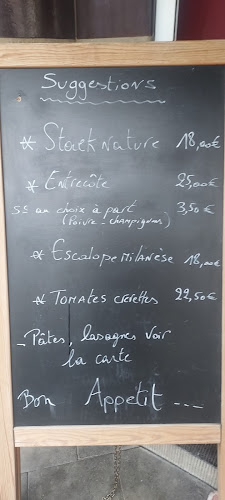 Suggestions
* Steack nature 18,00€
* Entrecôte 25,00€
SS au choix à part 3,50€
(Poivre - champignons)
* Escalope milanèse 18,00€
* Tomates crevettes 22,50€
- Pâtes, lasagnes voir
la carte
Bon Appétit ---